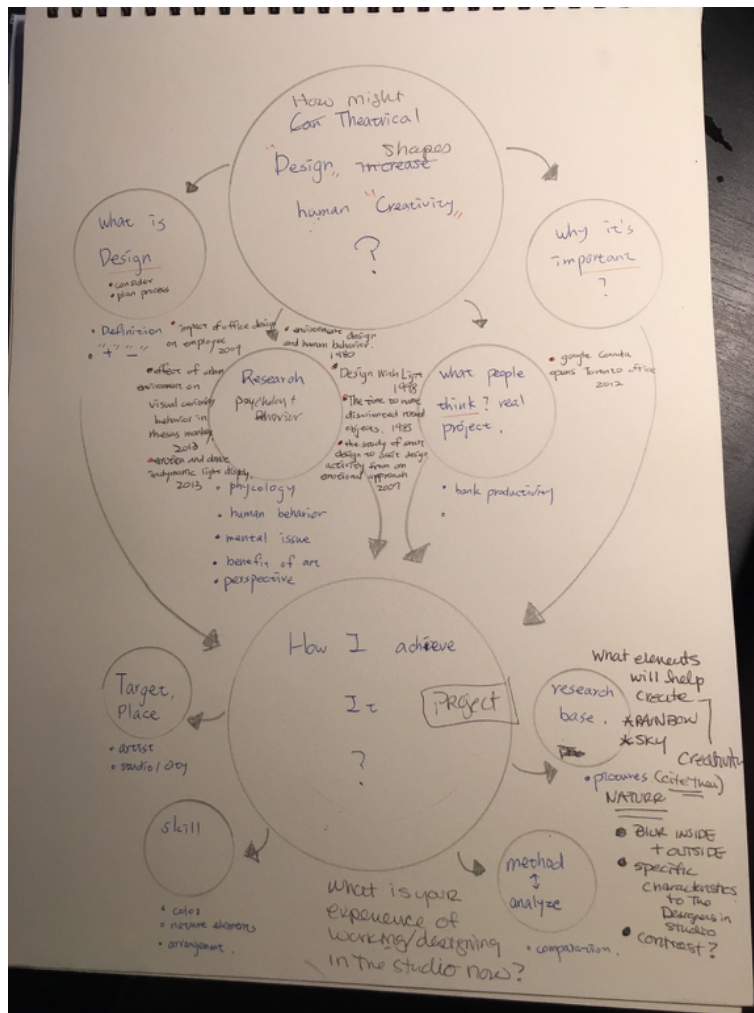 How might
Can Theatrical
shapes
"Design" increase
human "Creativity"
?
what is
Design
• consider
• plan process
why it's
important
?
• Definition
• "+" "-"
• impact of office design
on employee
2009
• environment design
and human behavior.
1980
• effect of urban
environment on
visual
behavior in
rhesus monkey
• emotion and dance
in dynamic light display
2013
Research
psychology+
Behavior
• Design With Light
1998
• The time to name
disoriented
objects. 1985
• the study of
design to design
activity from an
emotional approach
what people
think? real
project.
• google Canada
opens Toronto office
2012
• phycology
• human behavior
• mental issue
• benefit of art
• perspective
• bank productivity
•
How I achieve
It
?
Project
Target,
Place
• artist
• studio/city
research
base.
What elements
will help
create
*RAINBOW
*SKY
Creativity
• pictures (cite them)
NATURE
• BLUR INSIDE
+ OUTSIDE
• specific
characteristics
to The
Designers in
studio
• contrast?
skill
• color
• nature elements
• arrangement.
method
↕
analyze
• comparation.
What is your
experience of
working/designing
in the studio now?